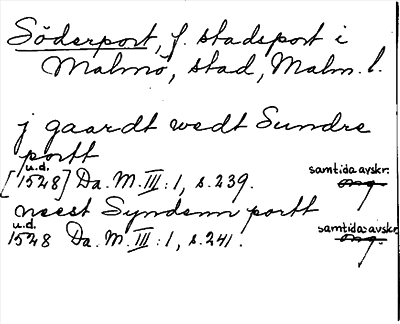 Söderport, f. stadsport i
Malmö, stad, Malm. l.
j gaardt wedt Sundre
portt
u.d.
[1528] Da. M. III: 1, s. 239. samtida avskr.
orig.
neest Syndenn portt
u.d.
1528 Da. M. III: 1, s. 241. samtida avskr.
orig.